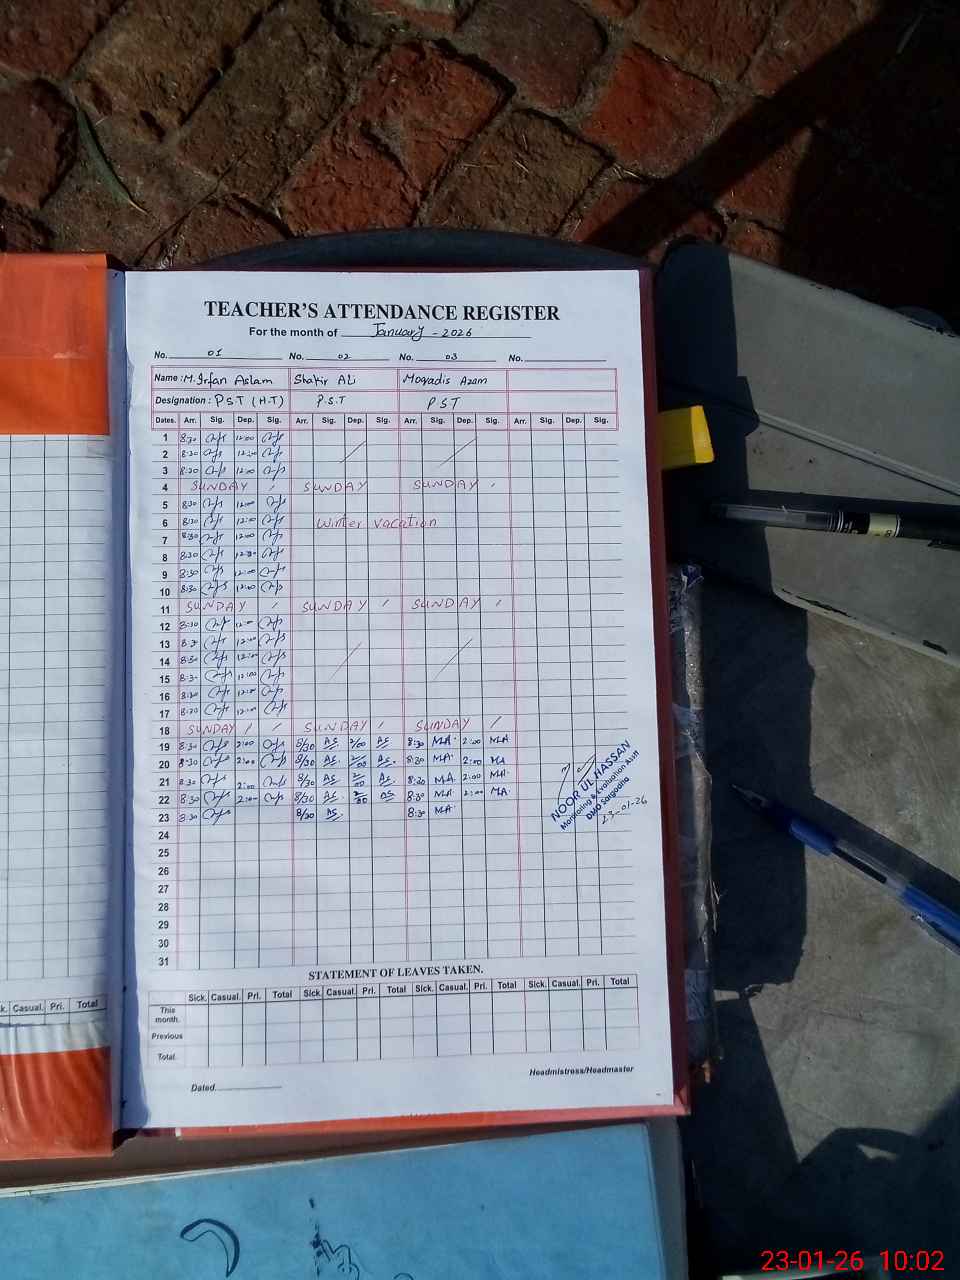 TEACHER'S ATTENDANCE REGISTER
For the month of January - 2026
No. 01 No. 02 No. 03 No.
Name : M. Irfan Aslam Shakir Ali Moqadis Azam
Designation : PST (H.T) P.S.T PST
Dates. Arr. Sig. Dep. Sig. Arr. Sig. Dep. Sig. Arr. Sig. Dep. Sig. Arr. Sig. Dep. Sig.
1 8:30 12:00
2 8:30 12:00
3 8:30 12:00
4 SUNDAY SUNDAY SUNDAY
5 8:30 12:00
6 8:30 12:00 Winter vacation
7 8:30 12:00
8 8:30 12:00
9 8:30 12:00
10 8:30 12:00
11 SUNDAY SUNDAY SUNDAY
12 8:30 12:00
13 8:30 12:00
14 8:30 12:00
15 8:30 12:00
16 8:30 12:00
17 8:30 12:00
18 SUNDAY SUNDAY SUNDAY
19 8:30 2:00 8/30 AS 2/00 AS 8:30 MA 2:00 MA
20 8:30 2:00 8/30 AS 2/00 AS 8:30 MA 2:00 MA
21 8:30 2:00 8/30 AS 2/00 AS 8:30 MA 2:00 MA
22 8:30 2:00 8/30 AS 2/00 AS 8:30 MA 2:00 MA
23 8:30 8/30 AS 8:30 MA
24
25
26
27
28
29
30
31
NOOR UL HASSAN
Monitoring & Evaluation Asstt
DMO Sargodha
23-01-26
STATEMENT OF LEAVES TAKEN.
Sick. Casual. Pri. Total Sick. Casual. Pri. Total Sick. Casual. Pri. Total Sick. Casual. Pri. Total
This month.
Previous
Total.
Headmistress/Headmaster
Dated.
k. Casual. Pri. Total
23-01-26 10:02